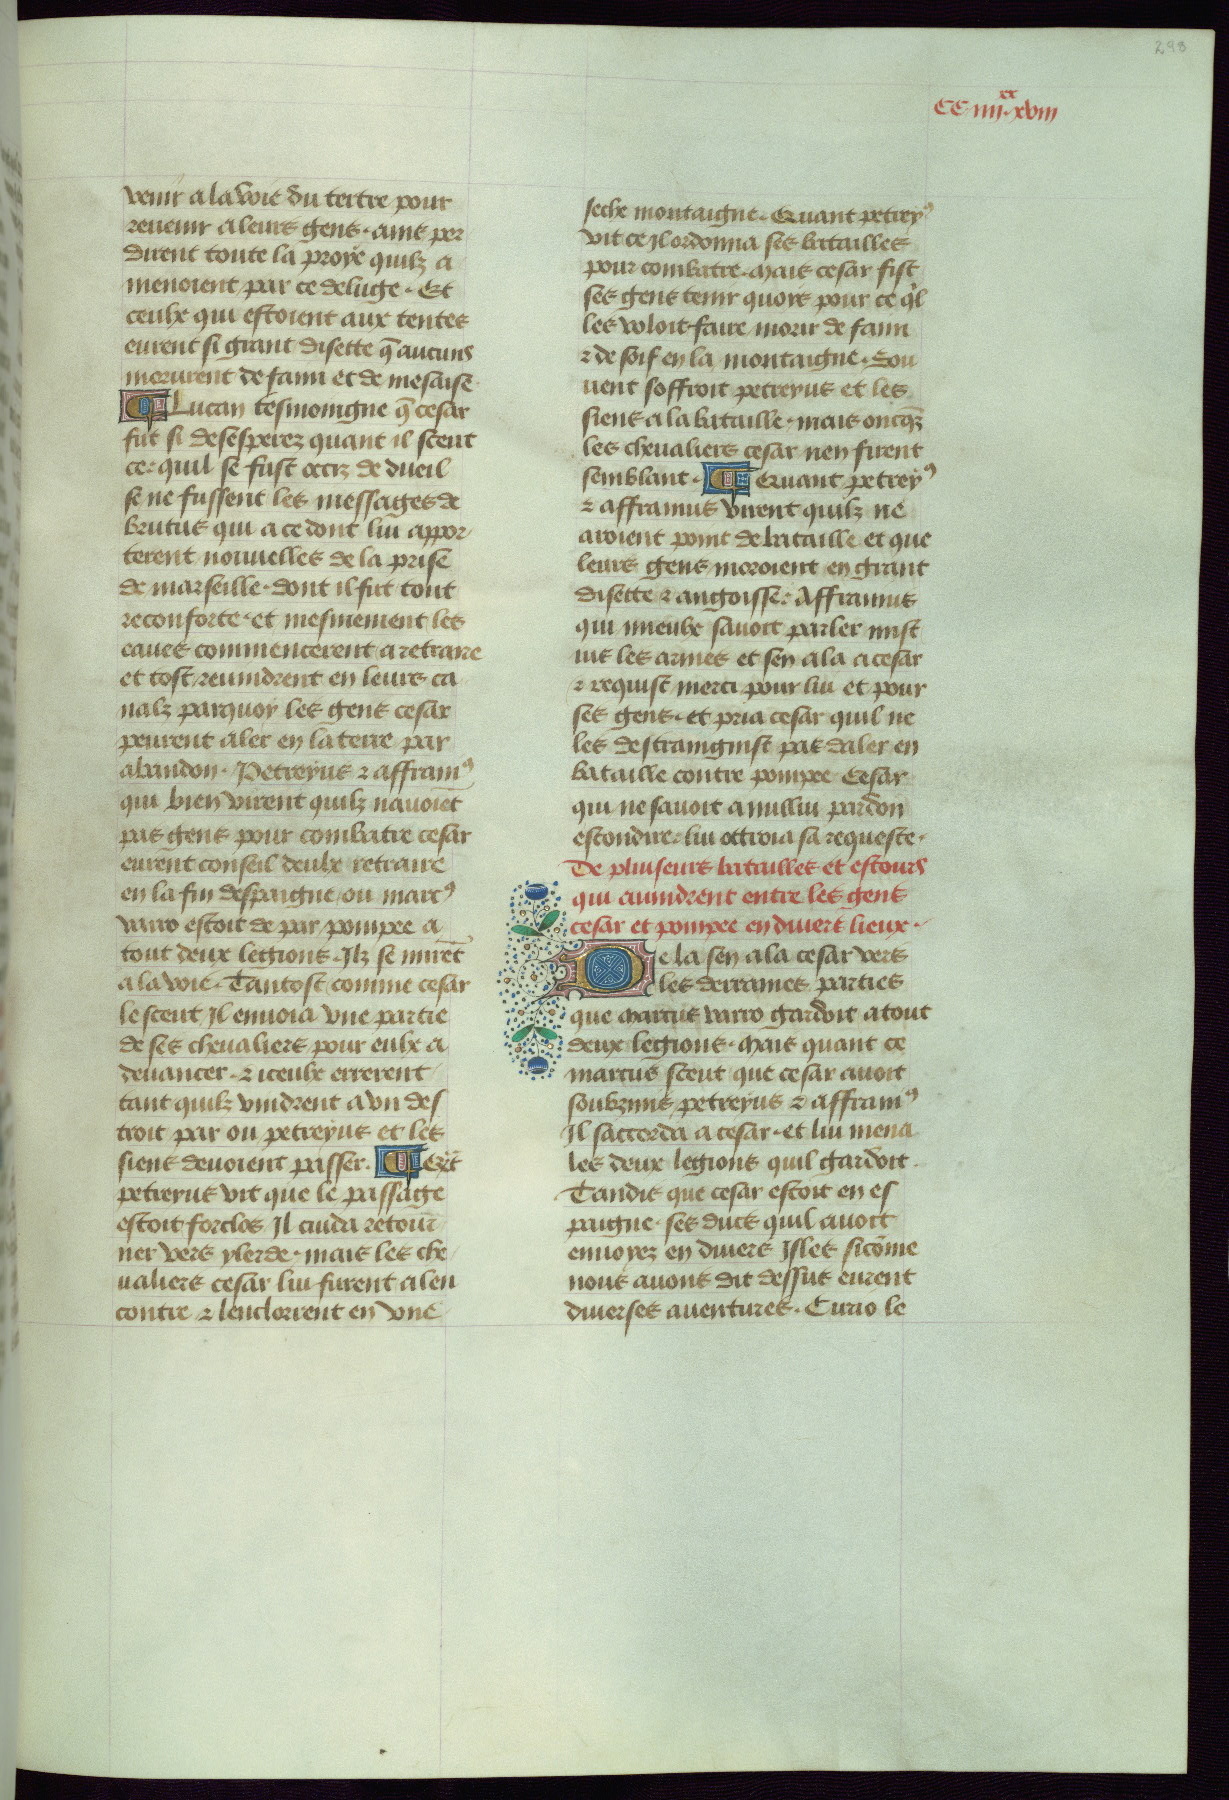 298
CC·iiii·xx·xviii
venir a la voie du tertre pour
revenir a leurs gens· ains per
dirent toute la proye quilz a
menoient par ce deluge· Et
ceulx qui estoient aux tentes
eurent si grant disette q̄ aucuns
morurent de fain et de mesaise·
Lucan tesmoingne q̄ cesar
fut si desesperez quant il sceut
ce· quil se fust occiz de dueil
se ne fussent les messages de
brutus qui a ce dont lui appor-
terent nouvelles de la prise
de marseille· dont il fut tout
reconforte· et mesmement les
eaues commencerent a retraire
et tost revindrent en leurs ca
nalz parquoy les gens cesar
peurent aler en la terre par
abandon· Petreyus ⁊ affraniꝰ
qui bien virent quilz navoiēt
pas gens pour combatre cesar
eurent conseil deulx retraire
en la fin despaigne ou marcꝰ
varro estoit de par pompee a
tout deux legions· Ilz se mirēt
a la voie· Tantost comme cesar
le sceut Il envoia vne partie
de ses chevaliers pour eulx a
devancer· ⁊ iceulx errerent
tant quilz vindrent a vn des
troit par ou petreyus et les
siens devoient passer·
petreyus vit que le passage
estoit forclos Il cuida retour̄
ner vers ylerde· mais les che
valiers cesar lui furent a len
contre ⁊ lenclorrent en vne
seche montaigne· Quant petreyꝰ
vit ce Il ordonna ses batailles
pour combatre· mais cesar fist
ses gens tenir quois pour ce q̄l
les voloit faire morir de fain
⁊ de soif en la montaigne· Sou
vent soffroit petreyus et les
siens a la bataille· mais oncq̄z
les chevaliers cesar nen firent
semblant· Quant petreyꝰ
⁊ affranius virent quilz ne
aroient point de bataille et que
leurs gens moroient en grant
disette ⁊ angoisse· Affranius
qui mieulx savoit parler mist
ius les armes et sen ala a cesar
⁊ requist merci pour lui et pour
ses gens· et pria cesar quil ne
les destraingnist pas daler en
bataille contre pompee Cesar
qui ne savoit a nullui pardon
escondire· lui ottroia sa requeste·
De pluiseurs batailles et estours
qui avindrent entre les gens
cesar et pompee en divers lieux·
De la sen ala cesar vers
les derraines parties
que marcus varro gardoit a tout
deux legions· Mais quant ce
marcus sceut que cesar avoit
soubzmis petreyus ⁊ affraniꝰ
Il saccorda a cesar· et lui mena
les deux legions quil gardoit·
Tandis que cesar estoit en es
paigne· ses ducs quil avoit
envoyez en divers Isles sicōme
nous avons dit dessus eurent
diverses aventures· Curio le